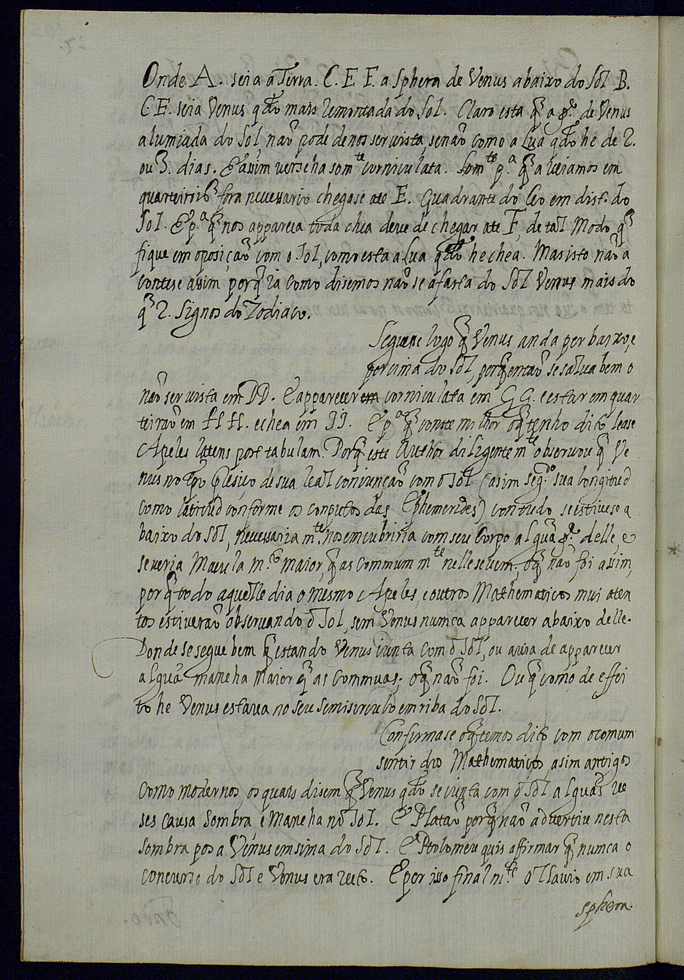 Onde A. seia a Terra. C. E F. a Sphera de Venus abaixo do Sol B.
C E. seia Venus q.do mais remontada do Sol. Claro esta q̃ a p.te de Venus
alumiada do Sol naõ pode de nos ser vista senaõ como a Lua q.do he de 2.
ou 3. dias. E assim verscha som.te corniculata. Som.te p.a q̃ a veiamos em
quarteirois fora necessario chegase ate E. Quadrante do Ceo em dist. do
Sol. E p.a q̃ nos appareca toda chea deve de chegar ate F, de tal Modo q̃
fique em oposiçaõ com o Sol, como esta a Lua q.do he chea. Mas isto naõ a
contese assim porq̃ ia como disemos naõ se afasta do Sol Venus mais do
q̃ 2. Signos do Zodiaco.
Seguese logo q̃ Venus anda por baixo, e
por sima do Sol, porq̃ entaõ se salua bem o
naõ ser vista em DD. E apparecer corniculata em G G. e estar em quar
teiraõ em H H. e chea em II. E p.a q̃ conste milhor oq̃ tenho dito lease
Apeles latens post tabulam. Porq̃ este Author diligentem.te observou q̃ Ve
nus no de sua Real coniunçaõ com o Sol (asim seg.do sua longitud
como latitud conforme os computos das Ephemerides) contudo se estivese a
baixo do Sol, necessariam.te nos emcubriria com seu corpo algũa p.te delle e
se veria Macula m.to maior, q̃ as commum m.te nelle se vem. oq̃ naõ foi assim,
porq̃ todo aquelle dia o mesmo Apeles, e outros Mathematicos mui aten
tos estiveraõ observando o Sol, sem Venus nunca apparecer abaixo delle.
Donde se segue bem q̃ estando Venus iunta com o Sol, ou avia de apparecer
algũa mancha maior q̃ as commuas. oq̃ naõ foi. Ou q̃ como de effei
to he Venus estava no seu semisirculo em riba do Sol.
Confirmase oq̃ temos dito com o comum
sentir dos Mathematicos asim antigos
como modernos, os quais disem q̃ Venus q.do se iunta com o Sol alguãs ve
ses causa sombra e Mancha no Sol. E Plataõ porq̃ naõ advertiu nesta
sombra pos a Venus em sima do Sol. E Ptolomeu quis affirmar q̃ nunca o
concurso do Sol e Venus era recto. E por isso finalm.te o em sua
sphera.